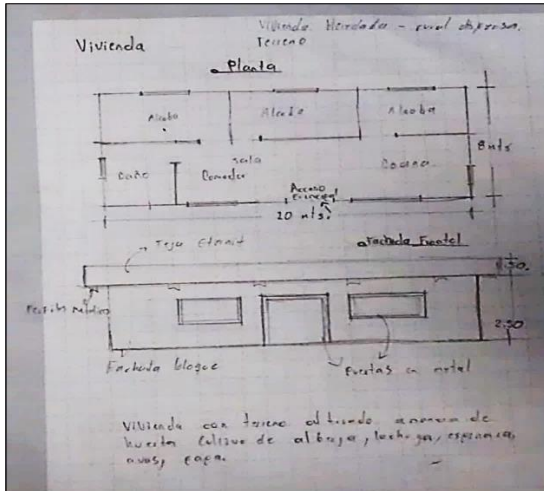 Vivienda Heredada - rural dispersa.
Terreno
Vivienda
Planta
Alcoba
Alcoba
Alcoba
8 mts
sala
Baño
Comedor
Cocina
Acceso
Principal
20 mts.
Teja Eternit
Fachada Frontal
.50.
2.50
Fachada bloque
Puertas en metal
Vivienda con terreno al fondo, a manera de
huerta Cultivo de albaja, lechuga, espinaca,
uvas, papa.